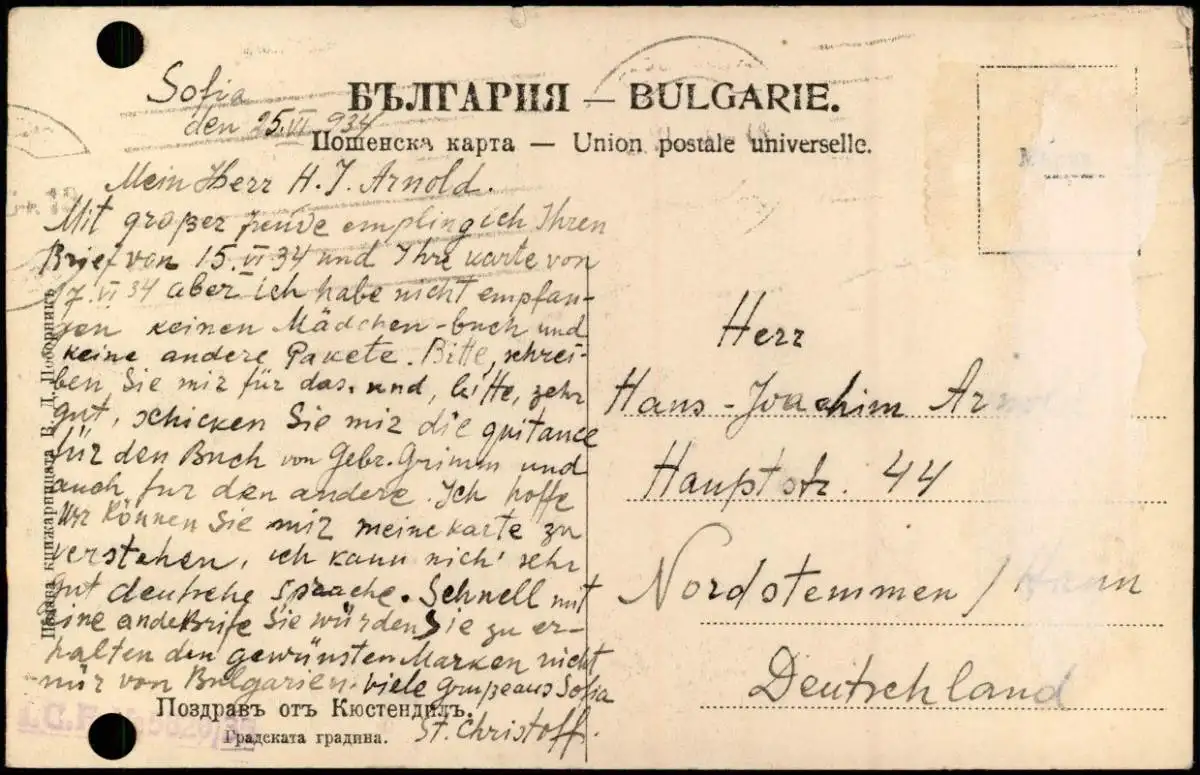 Sofia
den 25.VI 934
БЪЛГАРИЯ — BULGARIE.
Пощенска карта — Union postale universelle.
Mein Herr H. J. Arnold.
Mit großer freude emplingich Ihren
Brief von 15.VI 34 und Ihre karte von
17.VI 34 aber ich habe nicht empfan-
gen keinen Mädchen-buch und
keine andere Pakete. Bitte, schrei-
ben Sie mir für das. und, bitte, zehr
gut, schicken Sie mir die quitance
für den Buch von Gebr. Grimm und
auch fur den andere. Ich hoffe
können Sie mir meine karte zu
verstehen, ich kann nich' sehr
gut deutsche sprache. Schnell mit
eine ande Brife Sie würden Sie zu er-
halten den gewünsten Marken nicht
nur von Bulgarien. viele grußeaus Sofia
St. Christoff.
Herr
Hans-Joachim Arnold
Hauptstr. 44
Nordstemmen / Hann
Deutschland
Поздравъ отъ Кюстендилъ.
Градската градина.
Издава книжарницата В. Д. Поборникъ